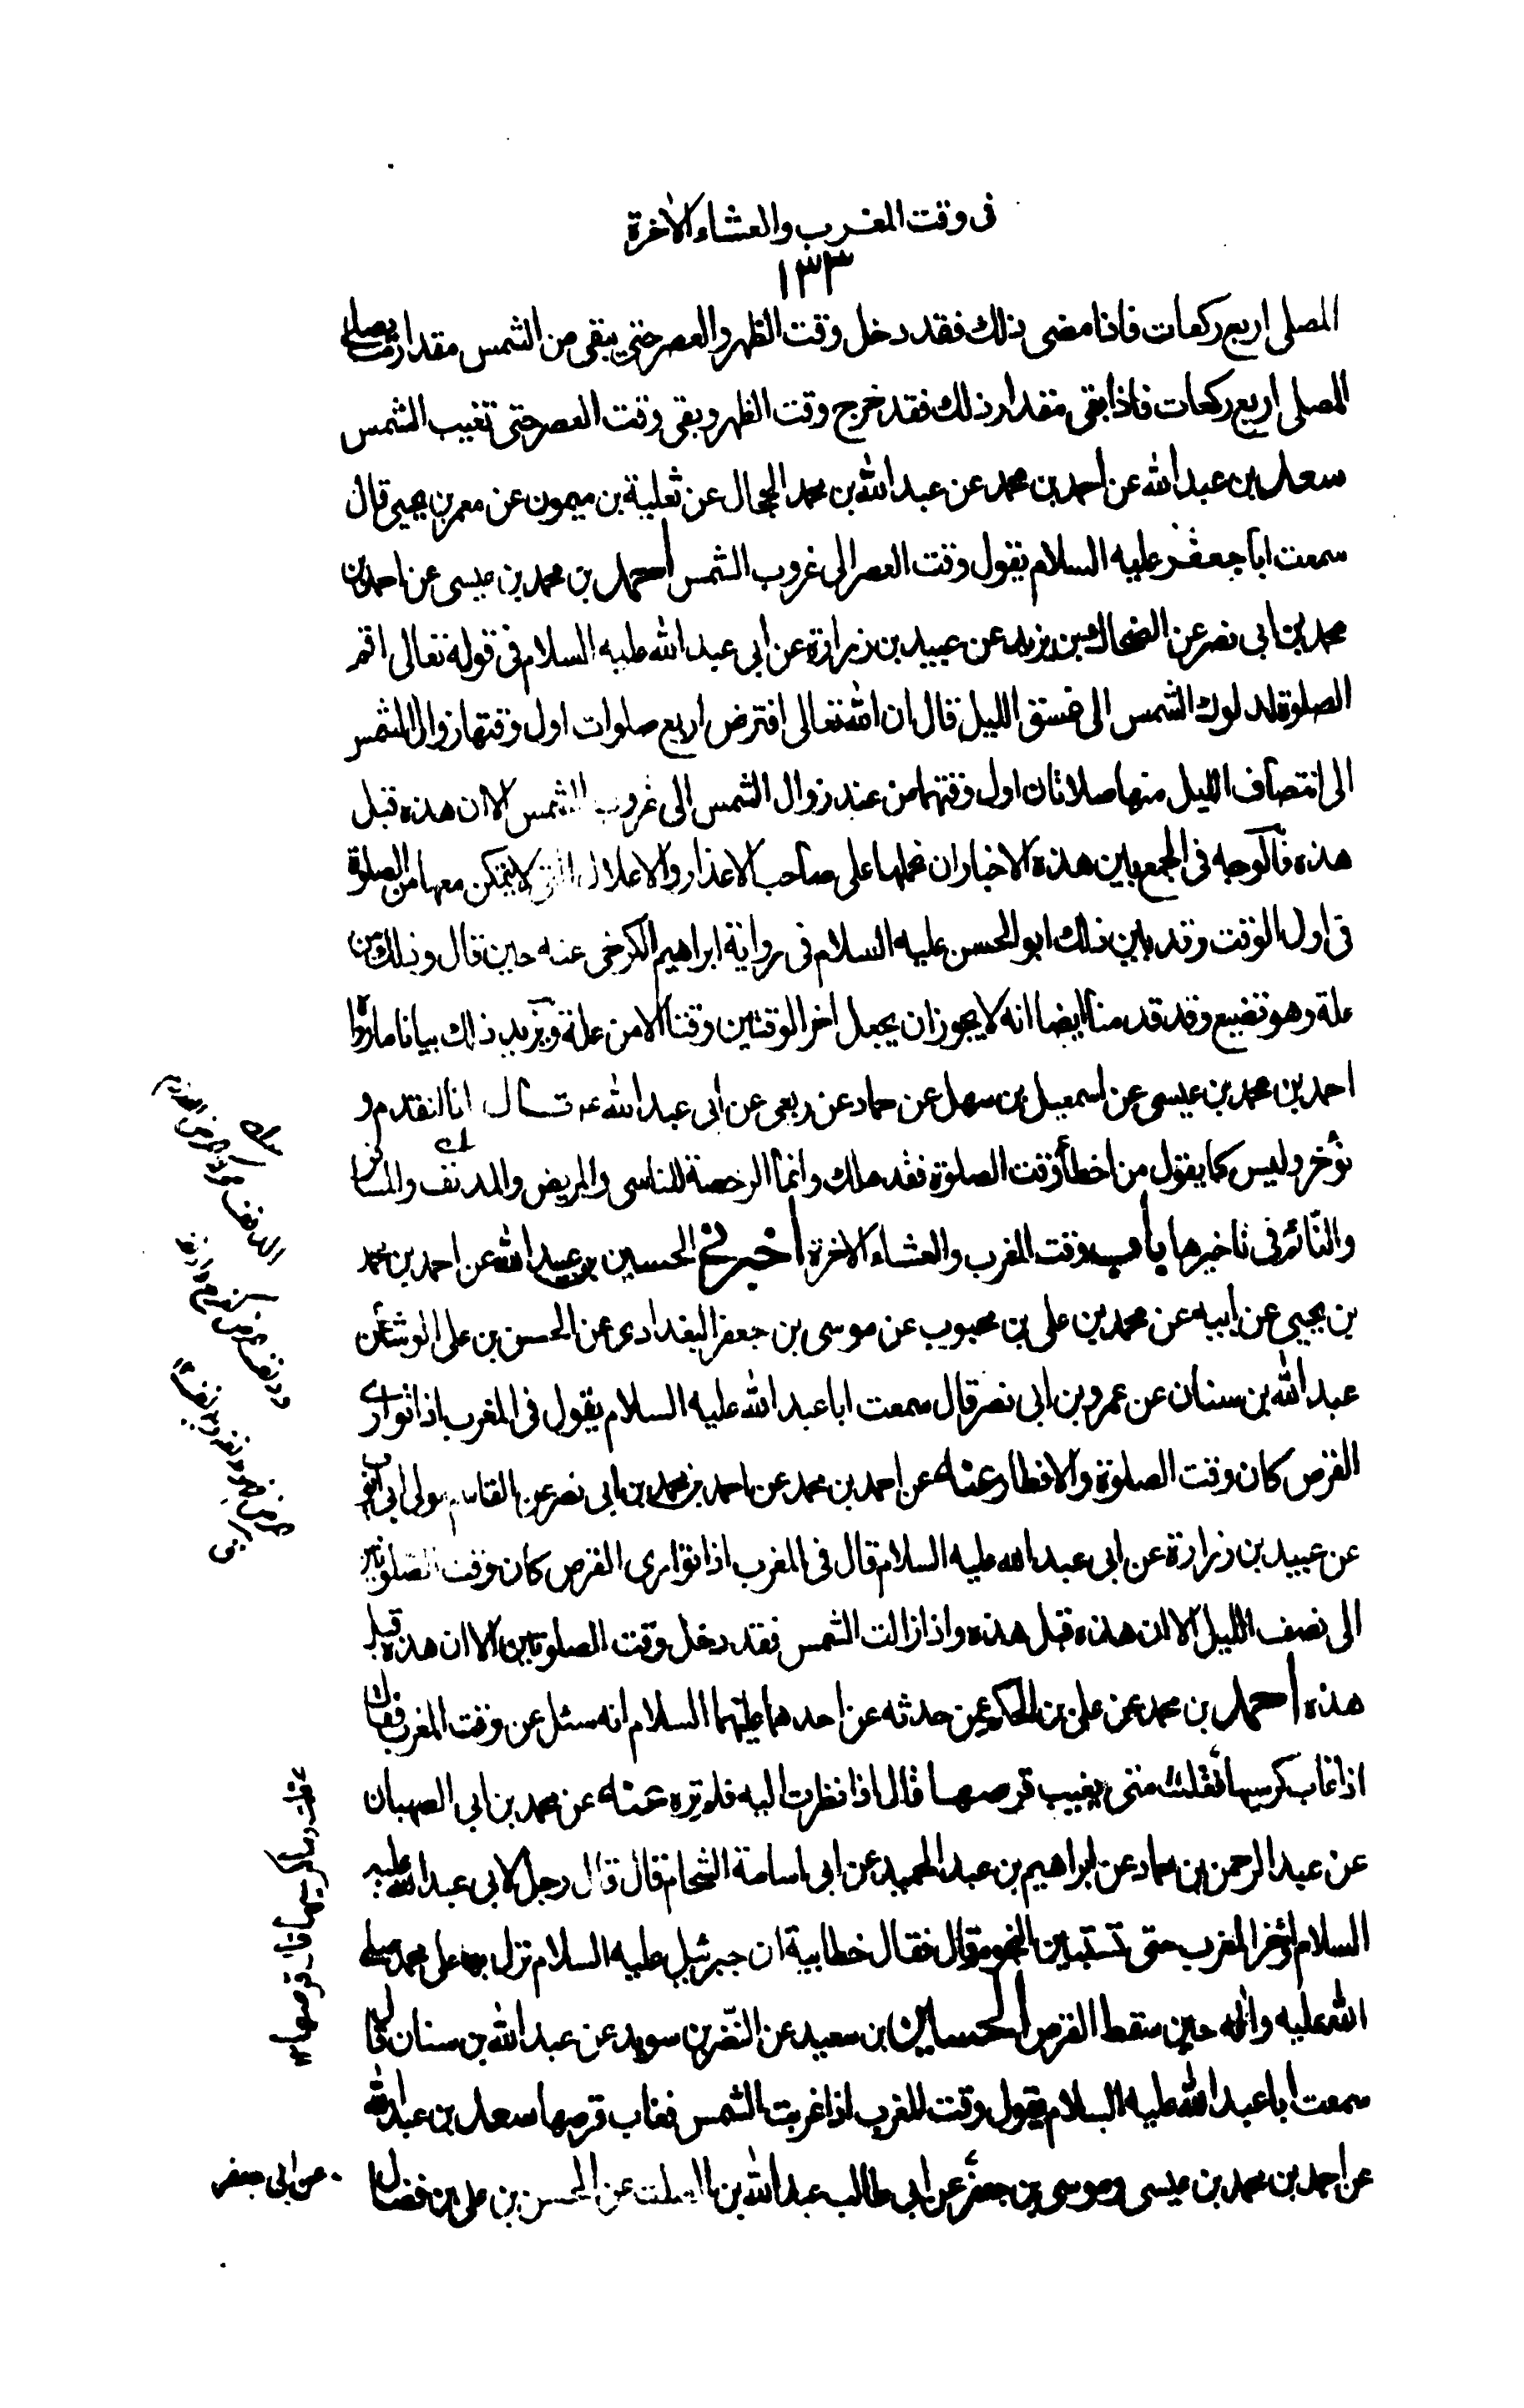 فى وقت المغرب والعشاء الاخرة
١٣٣
المصلى اربع ركعات فاذا مضى ذلك فقد دخل وقت الظهر والعصر حتى يبقى من الشمس مقدار يصلى
المصلى اربع ركعات فاذا بقى مقدار ذلك فقد خرج وقت الظهر وبقى وقت العصر حتى تغيب الشمس
سعد بن عبد الله عن احمد بن محمد عن عبد الله بن محمد الحجال عن ثعلبة بن ميمون عن معمر بن يحيى قال
سمعت ابا جعفر عليه السلام يقول وقت العصر الى غروب الشمس احمد بن محمد بن عيسى عن احمد بن
محمد بن ابى نصر عن الضحاك بن يزيد عن عبيد بن زرارة عن ابى عبد الله عليه السلام فى قوله تعالى اقم
الصلوة لدلوك الشمس الى غسق الليل قال ان الله تعالى افترض اربع صلوات اول وقتها زوال الشمس
الى انتصاف الليل منها صلاتان اول وقتهما من عند زوال الشمس الى غروب الشمس الا ان هذه قبل
هذه فالوجه فى الجمع بين هذه الاخبار ان نحملها على صاحب الاعذار والاعلال التى لا يتمكن معها من الصلوة
فى اول الوقت وقد بين ذلك ابو الحسن عليه السلام فى رواية ابراهيم الكرخى عنه حين قال وذلك من
علة وهو تضييع وقد قدمنا ايضا انه لا يجوز ان يجعل اخر الوقتين وقتا الا من علة ويزيد ذلك بيانا ما رواه
احمد بن محمد بن عيسى عن اسمعيل بن سهل عن حماد عن ربعى عن ابى عبد الله ع قال انا لنقدم و
نؤخر وليس كما يقول من اخطأ وقت الصلوة فقد هلك وانما الرخصة للناسى والمريض والمدنف والمسافر
والنائم فى تاخيرها باب وقت المغرب والعشاء الاخرة اخبرنى الحسين بن عبيد الله عن احمد بن محمد
بن يحيى عن ابيه عن محمد بن على بن محبوب عن موسى بن جعفر البغدادى عن الحسن بن على الوشاء عن
عبد الله بن سنان عن عمرو بن ابى نصر قال سمعت ابا عبد الله عليه السلام يقول فى المغرب اذا توارى
القرص كان وقت الصلوة والافطار عنه عن احمد بن محمد عن احمد بن محمد بن ابى نصر عن القاسم مولى ابى ايوب
عن عبيد بن زرارة عن ابى عبد الله عليه السلام قال فى المغرب اذا توارى القرص كان وقت الصلوتين
الى نصف الليل الا ان هذه قبل هذه واذا زالت الشمس فقد دخل وقت الصلوتين الا ان هذه قبل
هذه احمد بن محمد عن على بن الحكم عمن حدثه عن احدهما عليهما السلام انه سئل عن وقت المغرب فقال
اذا غاب كرسيها فقلت متى يغيب قرصها قال اذا نظرت اليه فلم تره عنه عن محمد بن ابى الصهبان
عن عبد الرحمن بن حماد عن ابراهيم بن عبد الحميد عن ابى اسامة الشحام قال قال رجل لابى عبد الله عليه
السلام اؤخر المغرب حتى تستبين النجوم قال فقال خطابية ان جبرئيل عليه السلام نزل بها على محمد صلى
الله عليه واله حين سقط القرص الحسين بن سعيد عن النضر بن سويد عن عبد الله بن سنان قال
سمعت ابا عبد الله عليه السلام يقول وقت المغرب اذا غربت الشمس فغاب قرصها سعد بن عبد الله
عن احمد بن محمد بن عيسى وموسى بن جعفر عن ابى طالب عبد الله بن الصلت عن الحسن بن على بن فضال
فقلت وما كرسيها قال قرصها
عن ابى جعفر